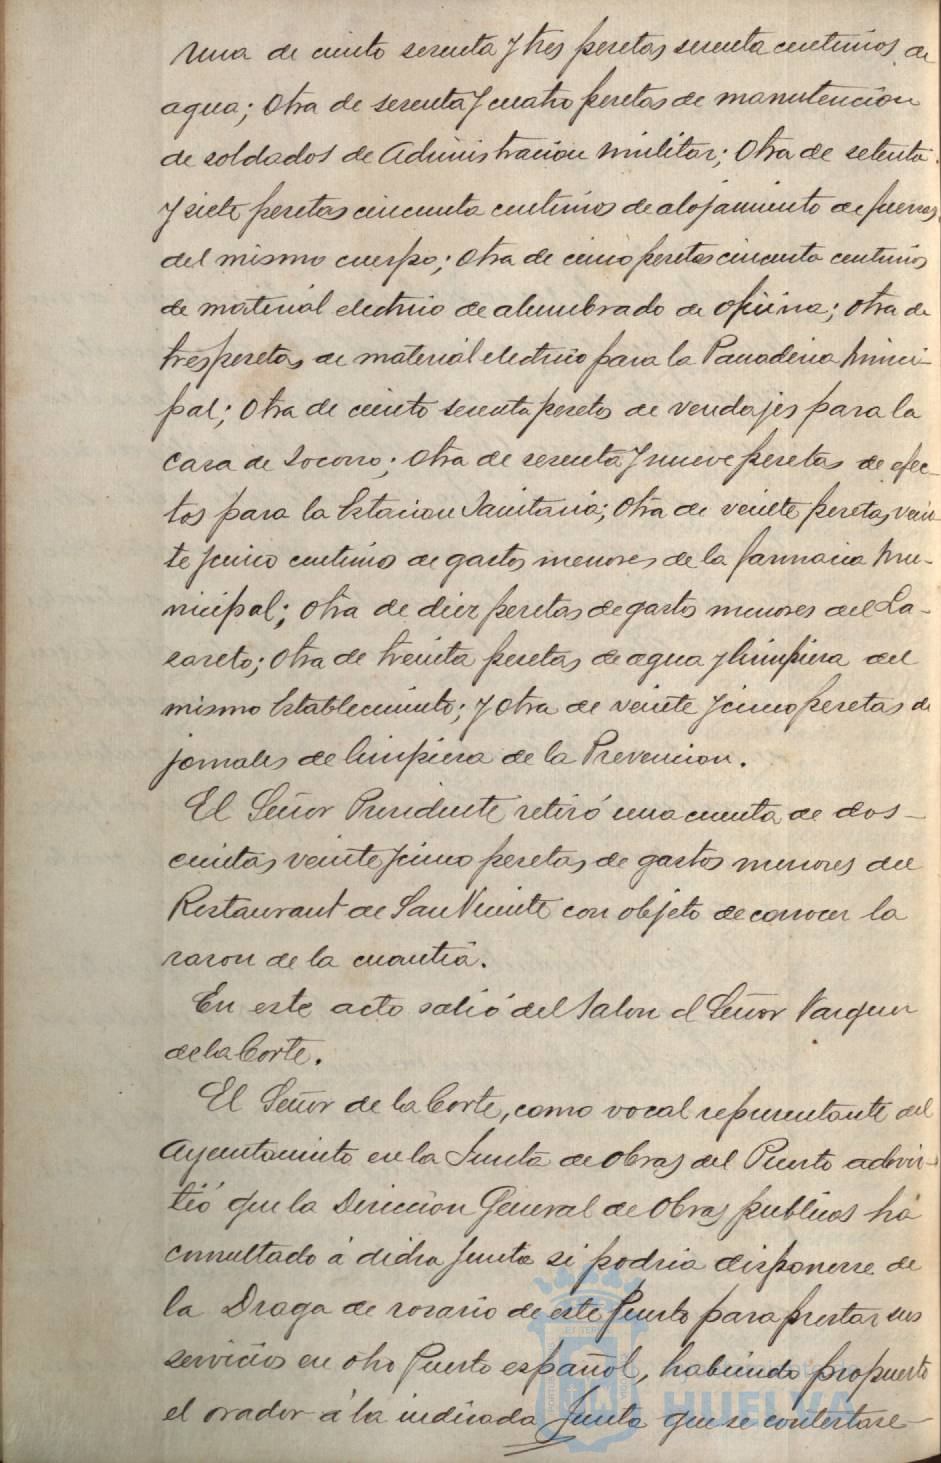 Una de ciento sesenta y tres pesetas sesenta centimos de
agua; Otra de sesenta y cuatro pesetas de manutencion
de soldados de Administracion militar; Otra de setenta
y siete pesetas cincuenta centimos de alojamiento de fuerzas
del mismo cuerpo; Otra de cinco pesetas cincuenta centimos
de material electrico de alumbrado de oficina; Otra de
tres pesetas de material electrico para la Panaderia Munici-
pal; Otra de ciento sesenta pesetas de vendajes para la
Casa de Socorro; Otra de sesenta y nueve pesetas de efec-
tos para la Estacion Sanitaria; Otra de veinte pesetas vein-
te y cinco centimos de gastos menores de la farmacia Mu-
nicipal; Otra de diez pesetas de gastos menores del La-
zareto; Otra de treinta pesetas de agua y limpieza del
mismo Establecimiento; y Otra de veinte y cinco pesetas de
jornales de limpieza de la Prevencion.
El Señor Presidente retiró una cuenta de dos-
cientas veinte y cinco pesetas de gastos menores del
Restaurant de San Vicente con objeto de conocer la
razon de la cuantia.
En este acto salió del Salon el Señor Vazquez
de la Corte.
El Señor de la Corte, como vocal representante del
Ayuntamiento en la Junta de Obras del Puerto advir-
tió que la Direccion General de Obras publicas há
consultado á dicha Junta si podria disponerse de
la Draga de rosario de este Puerto para prestar sus
servicios en otro Puerto español, habiendo propuesto
el orador á la indicada Junta que se contestase
HUELVA